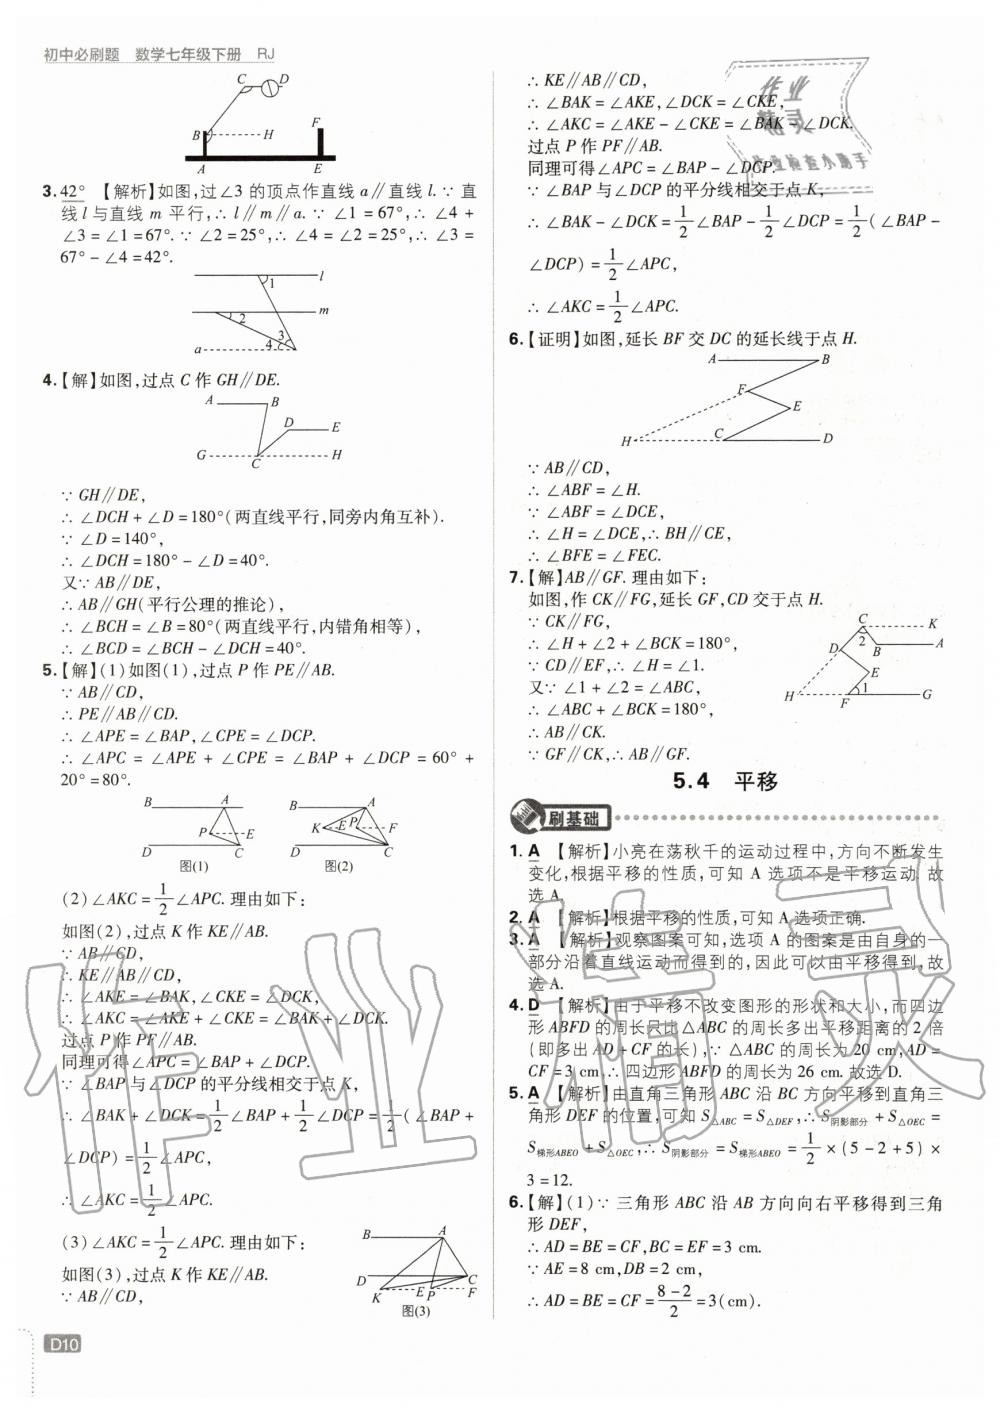 初中必刷题 数学七年级下册 RJ
C D
B H F
A E
3. 42° 【解析】如图,过∠3 的顶点作直线 a∥直线 l.∵ 直
线 l 与直线 m 平行,∴ l∥m∥a.∵ ∠1=67°,∴ ∠4+
∠3=∠1=67°.∵ ∠2=25°,∴ ∠4=∠2=25°,∴ ∠3=
67°-∠4=42°.
l
1
m
2
3
a 4
4.【解】如图,过点 C 作 GH∥DE.
A B
D E
G C H
∵ GH∥DE,
∴ ∠DCH+∠D=180°(两直线平行,同旁内角互补).
∵ ∠D=140°,
∴ ∠DCH=180°-∠D=40°.
又∵ AB∥DE,
∴ AB∥GH(平行公理的推论),
∴ ∠BCH=∠B=80°(两直线平行,内错角相等),
∴ ∠BCD=∠BCH-∠DCH=40°.
5.【解】(1)如图(1),过点 P 作 PE∥AB.
∵ AB∥CD,
∴ PE∥AB∥CD.
∴ ∠APE=∠BAP,∠CPE=∠DCP.
∴ ∠APC=∠APE+∠CPE=∠BAP+∠DCP=60°+
20°=80°.
B A B A
P E K E P F
D C D C
图(1) 图(2)
(2)∠AKC=1/2∠APC.理由如下:
如图(2),过点 K 作 KE∥AB.
∵ AB∥CD,
∴ KE∥AB∥CD,
∴ ∠AKE=∠BAK,∠CKE=∠DCK,
∴ ∠AKC=∠AKE+∠CKE=∠BAK+∠DCK.
过点 P 作 PF∥AB.
同理可得∠APC=∠BAP+∠DCP.
∵ ∠BAP 与∠DCP 的平分线相交于点 K,
∴ ∠BAK+∠DCK=1/2∠BAP+1/2∠DCP=1/2(∠BAP+
∠DCP)=1/2∠APC,
∴ ∠AKC=1/2∠APC.
(3)∠AKC=1/2∠APC.理由如下:
如图(3),过点 K 作 KE∥AB.
∵ AB∥CD,
B A
D C
K E P F
图(3)
D10
∴ KE∥AB∥CD,
∴ ∠BAK=∠AKE,∠DCK=∠CKE,
∴ ∠AKC=∠AKE-∠CKE=∠BAK-∠DCK.
过点 P 作 PF∥AB.
同理可得∠APC=∠BAP-∠DCP.
∵ ∠BAP 与∠DCP 的平分线相交于点 K,
∴ ∠BAK-∠DCK=1/2∠BAP-1/2∠DCP=1/2(∠BAP-
∠DCP)=1/2∠APC,
∴ ∠AKC=1/2∠APC.
6.【证明】如图,延长 BF 交 DC 的延长线于点 H.
A B
F
E
H C D
∵ AB∥CD,
∴ ∠ABF=∠H.
∵ ∠ABF=∠DCE,
∴ ∠H=∠DCE,∴ BH∥CE,
∴ ∠BFE=∠FEC.
7.【解】AB∥GF.理由如下:
如图,作 CK∥FG,延长 GF,CD 交于点 H.
∵ CK∥FG,
∴ ∠H+∠2+∠BCK=180°,
∵ CD∥EF,∴ ∠H=∠1.
又∵ ∠1+∠2=∠ABC,
∴ ∠ABC+∠BCK=180°,
∴ AB∥CK.
∵ GF∥CK,∴ AB∥GF.
C K
2
D B A
E
H 1 G
F
5.4 平移
刷基础
1. A 【解析】小亮在荡秋千的运动过程中,方向不断发生
变化,根据平移的性质,可知 A 选项不是平移运动.故
选 A.
2. A 【解析】根据平移的性质,可知 A 选项正确.
3. A 【解析】观察图案可知,选项 A 的图案是由自身的一
部分沿着直线运动而得到的,因此可以由平移得到,故
选 A.
4. D 【解析】由于平移不改变图形的形状和大小,而四边
形 ABFD 的周长只比△ABC 的周长多出平移距离的 2 倍
(即多出 AD+CF 的长),∵ △ABC 的周长为 20 cm,AD=
CF=3 cm,∴ 四边形 ABFD 的周长为 26 cm.故选 D.
5. A 【解析】由直角三角形 ABC 沿 BC 方向平移到直角三
角形 DEF 的位置,可知 S△ABC=S△DEF,∴ S阴影部分+S△OEC=
S梯形ABEO+S△OEC,∴ S阴影部分=S梯形ABEO=1/2×(5-2+5)×
3=12.
6.【解】(1)∵ 三角形 ABC 沿 AB 方向向右平移得到三角
形 DEF,
∴ AD=BE=CF,BC=EF=3 cm.
∵ AE=8 cm,DB=2 cm,
∴ AD=BE=CF=(8-2)/2=3(cm).
作业
精灵
作业检查小助手
作业精灵